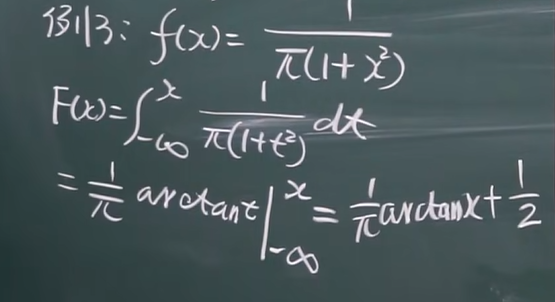 例3: f(x)= 1/π(1+x²)
F(x)=∫_{-∞}^{x} 1/π(1+t²) dt
= 1/π arctant |_{-∞}^{x} = 1/π arctanx + 1/2